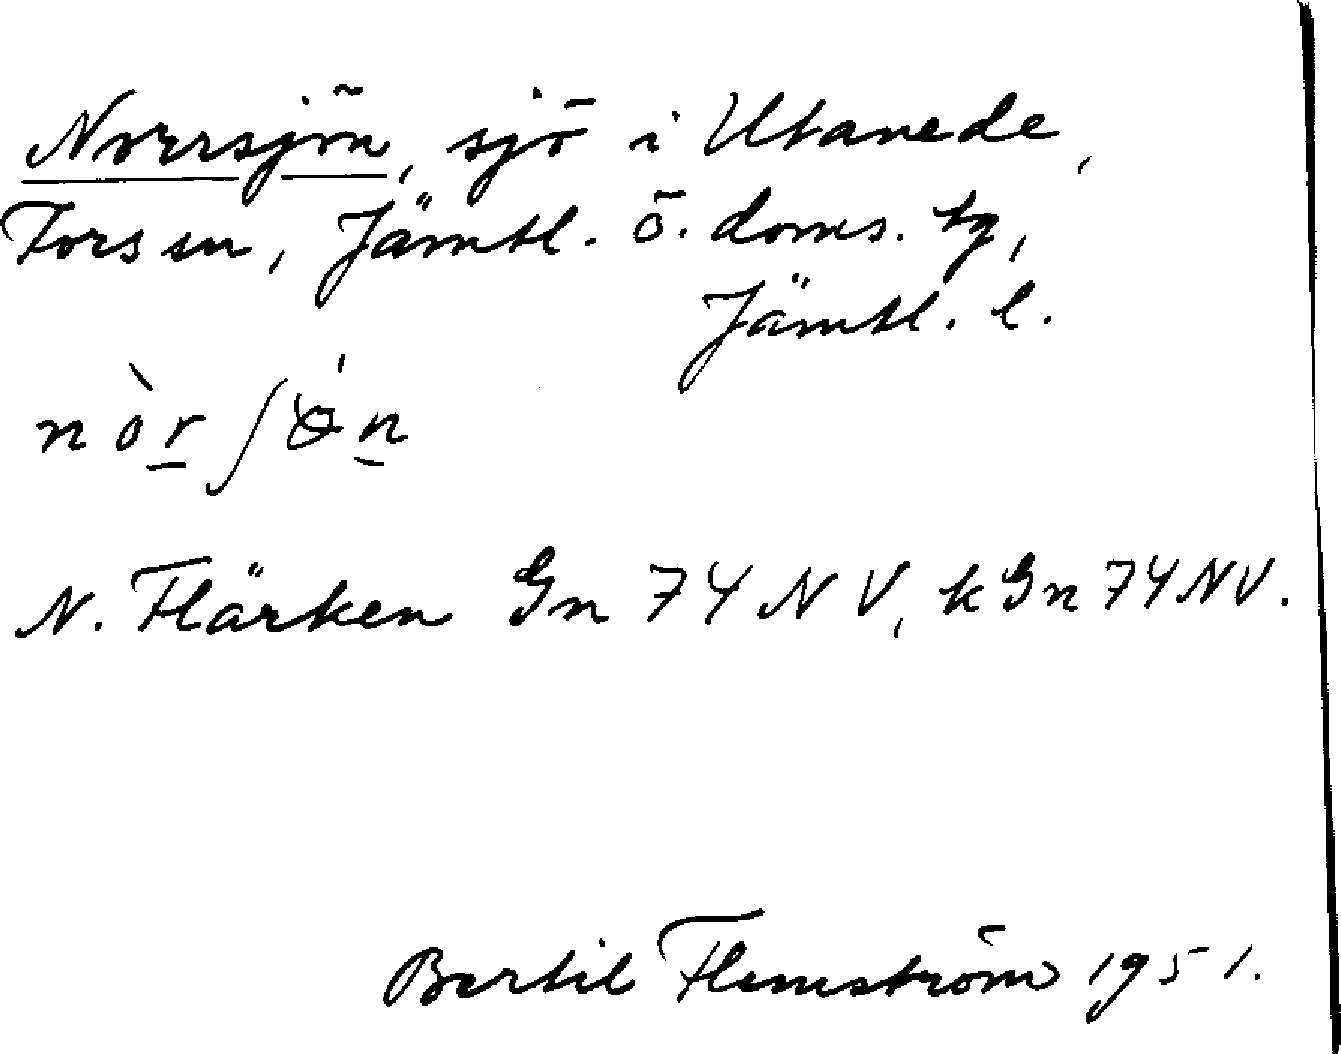 Norrsjön, sjö i Utanede,
Forsen, Jämtl. ö. doms. tg,
Jämtl. l.
N. Flärken Gn 74 NV, kGn 74 NV.
Bertil Flemström 1951.